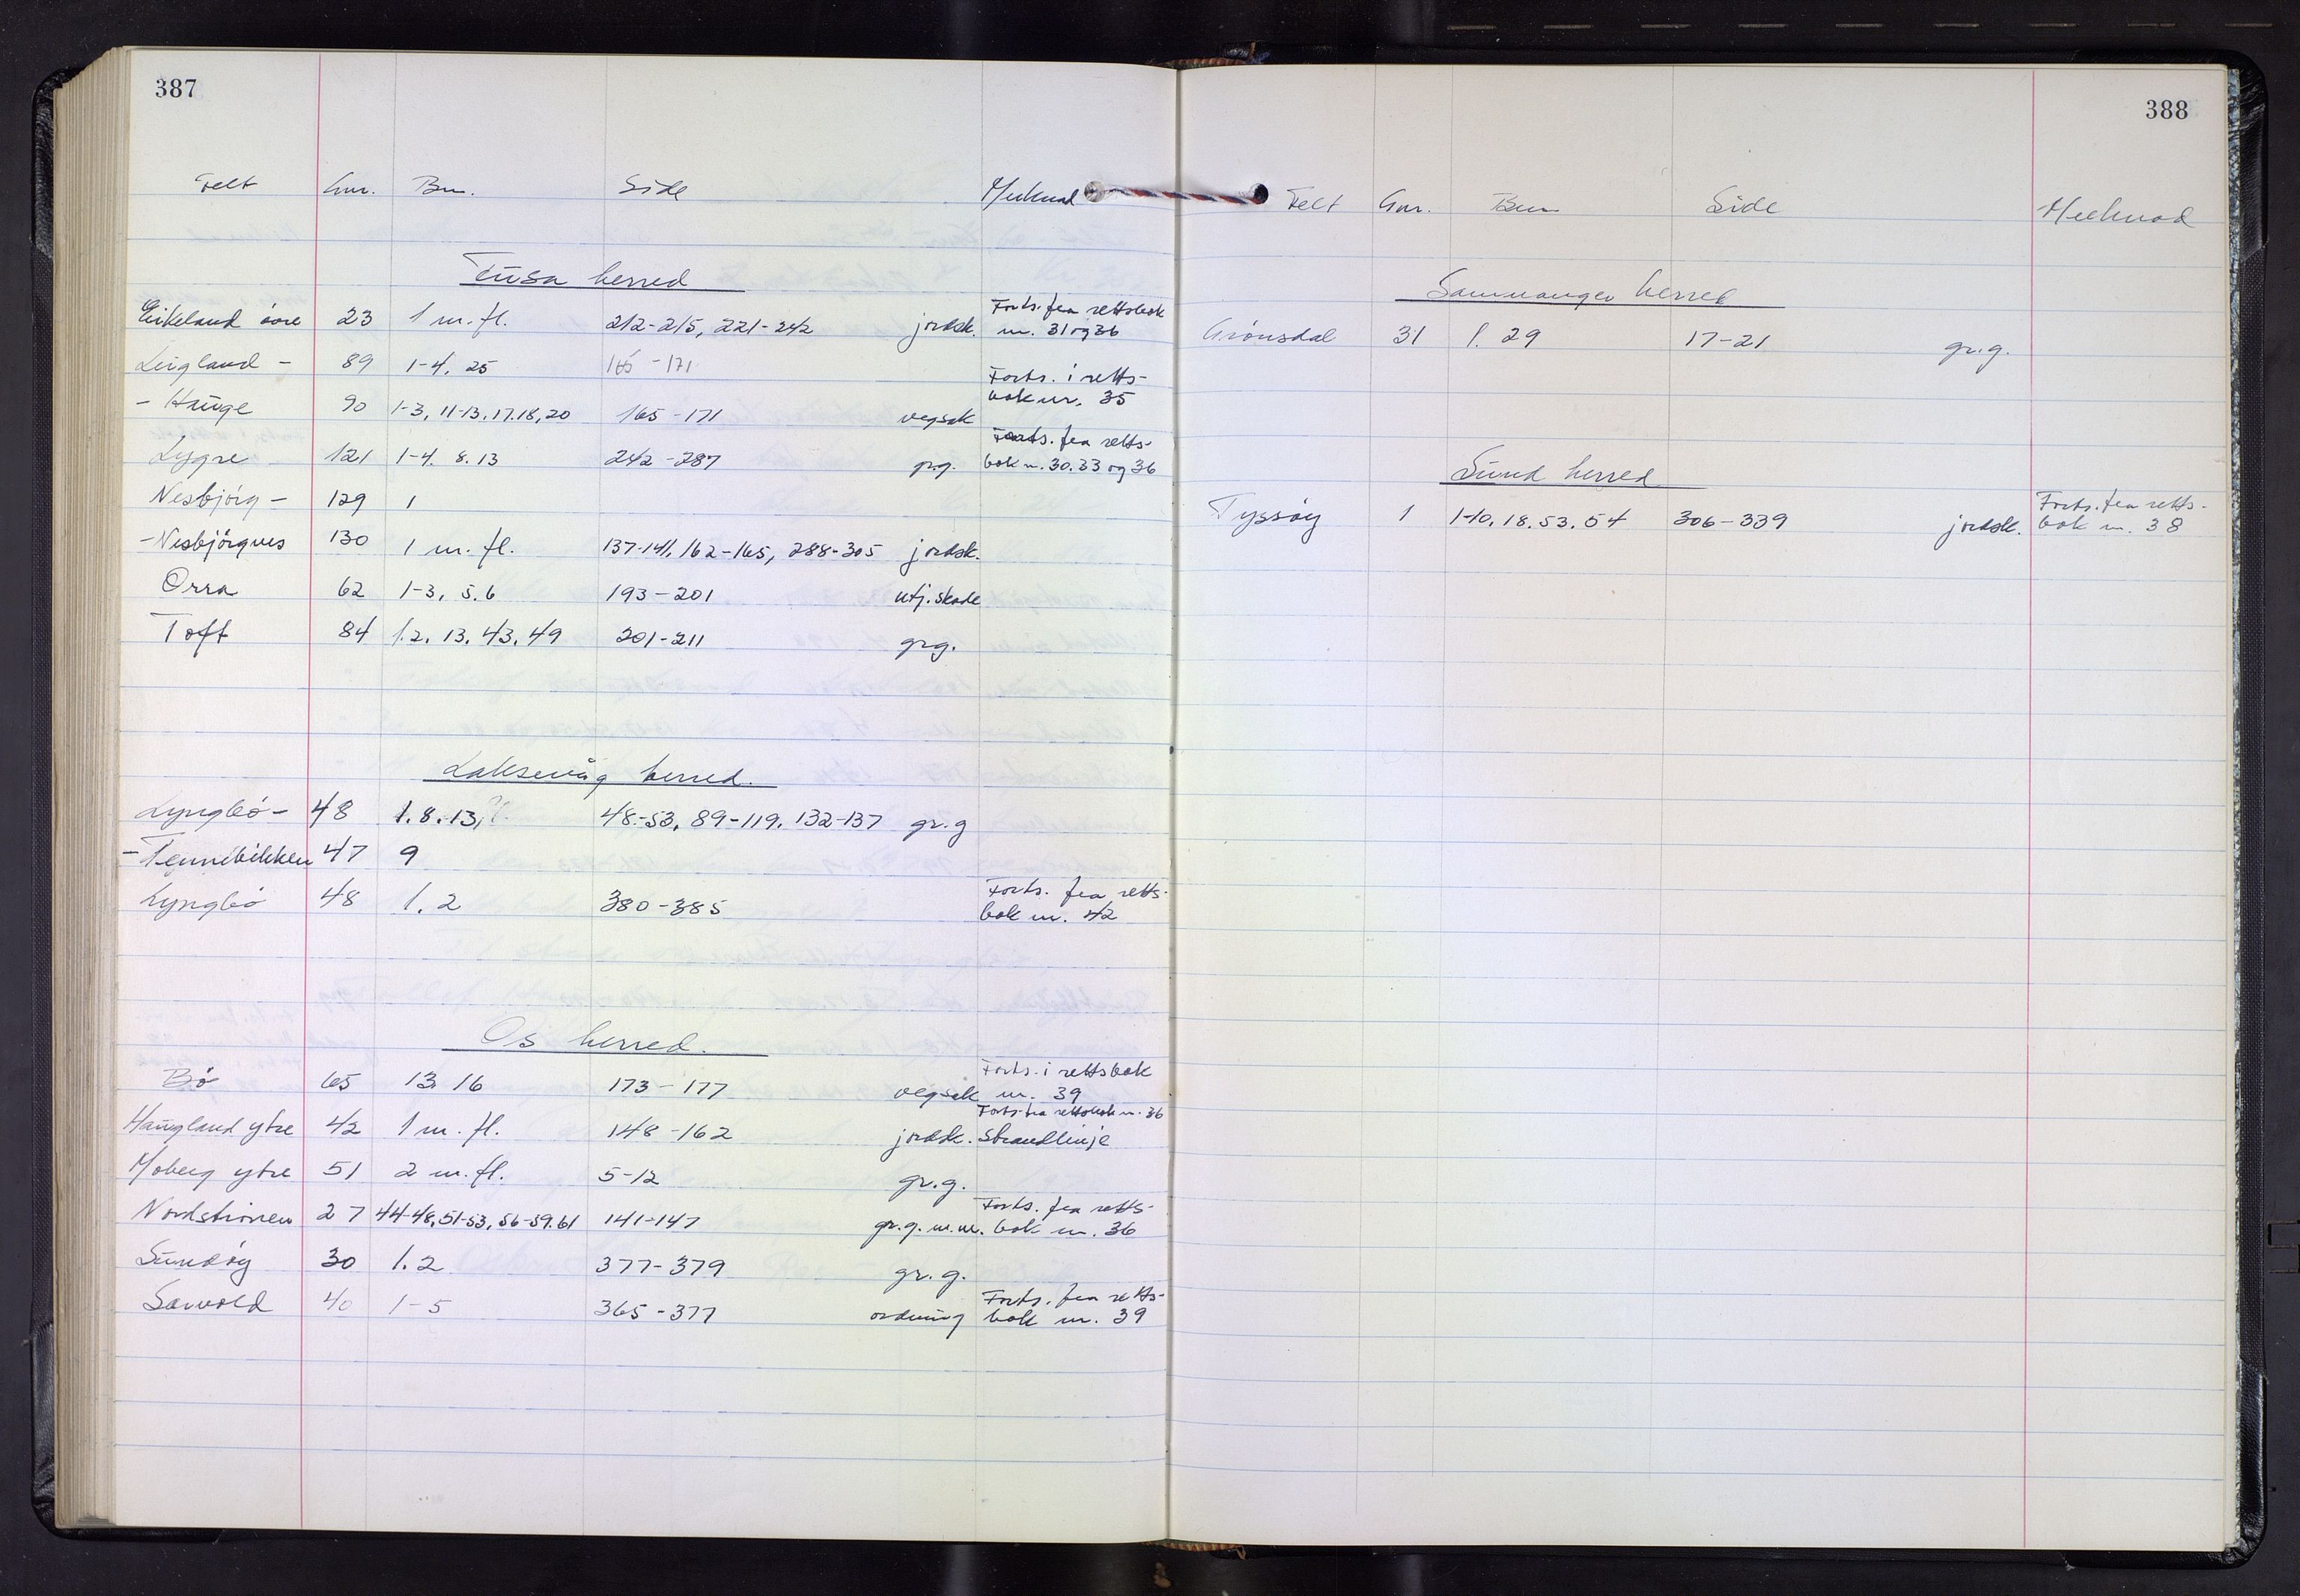 387
Felt Gnr. Bnr. Side Merknad
Fusa herred
Eikeland övre 23 1 m.fl. 212-215, 221-242 jordsk. Forts. fra rettsbok
nr. 31 og 36
Leigland - 89 1-4, 25 165-171
Forts. i retts-
- Hauge 90 1-3, 11-13, 17.18, 20 165-171 vegsak bok nr. 35
Forts. fra retts-
Lygre 121 1-4. 8.13 242-287 gr.g. bok nr. 30.33 og 36
Nesbjörg - 129 1
- Nesbjörgnes 130 1 m. fl. 137-141, 162-165, 288-305 jordsk.
Orra 62 1-3, 5.6 193-201 utj.skade
Toft 84 1.2. 13. 43. 49 201-211 gr.g.
Laksevåg herred.
Lyngbö - 48 1.8.13, 48-53, 89-119, 132-137 gr.g
- Tennebekken 47 9
Lyngbö 48 1.2 380-385 Forts. fra retts-
bok nr. 42
Os herred.
Bö 65 13, 16 173-177 vegsak Forts. i rettsbok
nr. 39
Haugland ytre 42 1 m. fl. 148-162 jordsk. Forts. fra rettsbok nr. 36
Strandlinje
Moberg ytre 51 2 m. fl. 5-12 gr.g.
Nordströnen 27 44-48, 51-53, 56-59.61 141-147 gr.g. m.m. Forts. fra retts-
bok nr. 36
Sundöy 30 1.2 377-379 gr.g.
Sørvold 40 1-5 365-377 ordning Forts. fra retts-
bok nr. 39
388
Felt Gnr. Bnr Side Merknad
Samnanger herred
Grönsdal 31 1. 29 17-21 gr.g.
Sund herred
Tyssöy 1 1-10. 18. 53. 54 306-339 jordsk. Forts. fra retts-
bok nr. 38